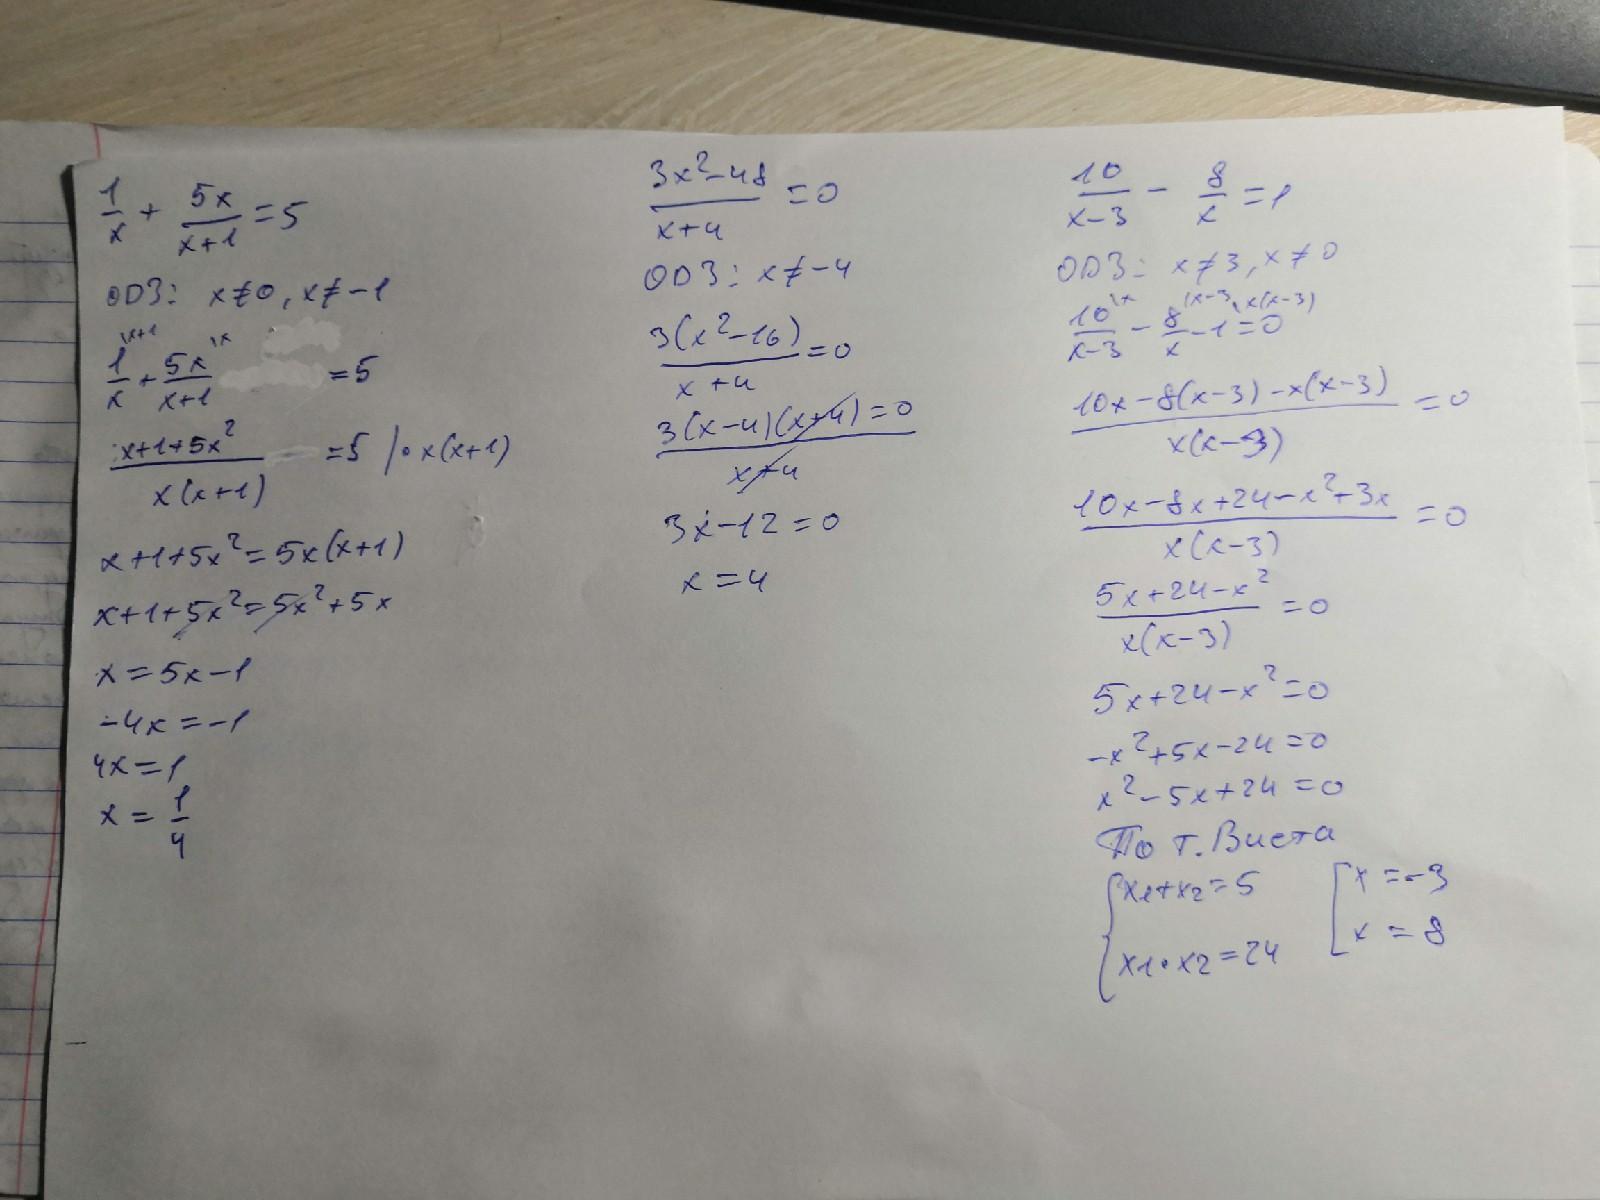 1/x + 5x/(x+1) = 5
ОДЗ: x≠0, x≠-1
1/x \x+1 + 5x/(x+1) \x = 5
(x+1+5x²)/(x(x+1)) = 5 | · x(x+1)
x+1+5x² = 5x(x+1)
x+1+5x² = 5x²+5x
x = 5x-1
-4x = -1
4x = 1
x = 1/4
(3x²-48)/(x+4) = 0
ОДЗ: x≠-4
3(x²-16)/(x+4) = 0
3(x-4)(x+4)/(x+4) = 0
3x-12 = 0
x = 4
10/(x-3) - 8/x = 1
ОДЗ: x≠3, x≠0
10/(x-3) \x - 8/x \x-3 - 1 \x(x-3) = 0
(10x-8(x-3)-x(x-3))/(x(x-3)) = 0
(10x-8x+24-x²+3x)/(x(x-3)) = 0
(5x+24-x²)/(x(x-3)) = 0
5x+24-x² = 0
-x²+5x-24 = 0
x²-5x+24 = 0
По т. Виета
{ x1+x2 = 5 [ x = -3
x1·x2 = 24 x = 8